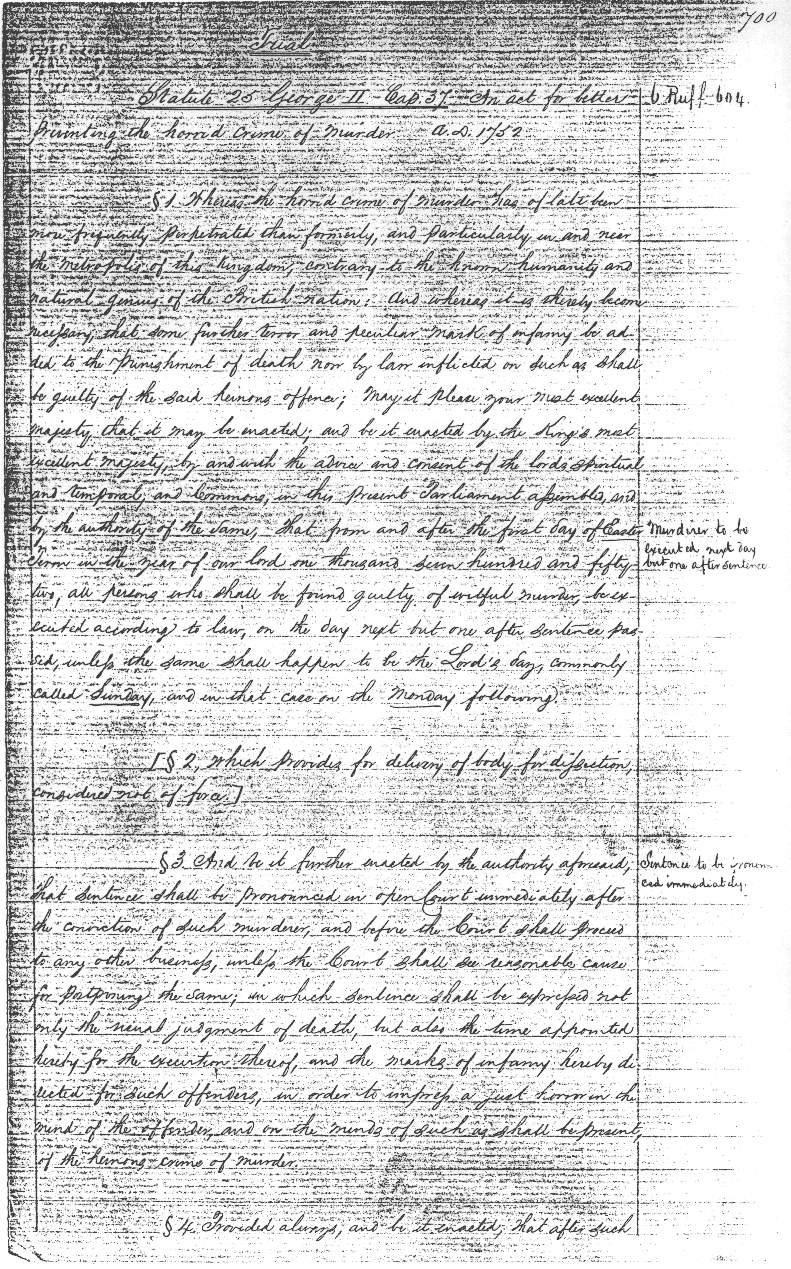 700
Trial
Statute 25 George II. Cap. 37. An act for better
6 Ruff. 604.
preventing the horrid crime of murder. A.D. 1752
§ 1. Whereas the horrid crime of murder has of late been
more frequently perpetrated than formerly, and particularly in and near
the metropolis of this kingdom, contrary to the known humanity and
natural genius of the British nation: And whereas it is thereby become
necessary, that some further terror and peculiar mark of infamy be ad-
ded to the punishment of death now by law inflicted on such as shall
be guilty of the said heinous offence; May it please your most excellent
majesty that it may be enacted; and be it enacted by the King's most
excellent majesty, by and with the advice and consent of the lords spiritual
and temporal, and Commons, in this present Parliament assembled, and
by the authority of the same, That from and after the first day of Easter
Murdirer to be
executed next day
but one after sentence.
Term in the year of our lord one thousand seven hundred and fifty-
two, all persons who shall be found guilty of wilful murder, be ex-
ecuted according to law, on the day next but one after sentence pas-
sed, unless the same shall happen to be the Lord's day, commonly
called Sunday, and in that case on the Monday following.
[§ 2, which provides for delivery of body for dissection,
considered not of force.]
§ 3. And be it further enacted by the authority aforesaid,
Sentence to be
ced immediately.
That sentence shall be pronounced in open Court immediately after
the conviction of such murderer, and before the Court shall proceed
to any other business, unless the Court shall see reasonable cause
for postponing the same; in which sentence shall be expressed not
only the usual judgment of death, but also the time appointed
hereby for the execution thereof, and the marks of infamy hereby di
rected for such offenders, in order to impress a just horror in the
mind of the offender, and on the minds of such as shall be present,
of the heinous crime of murder.
§ 4. Provided always, and be it enacted, that after such